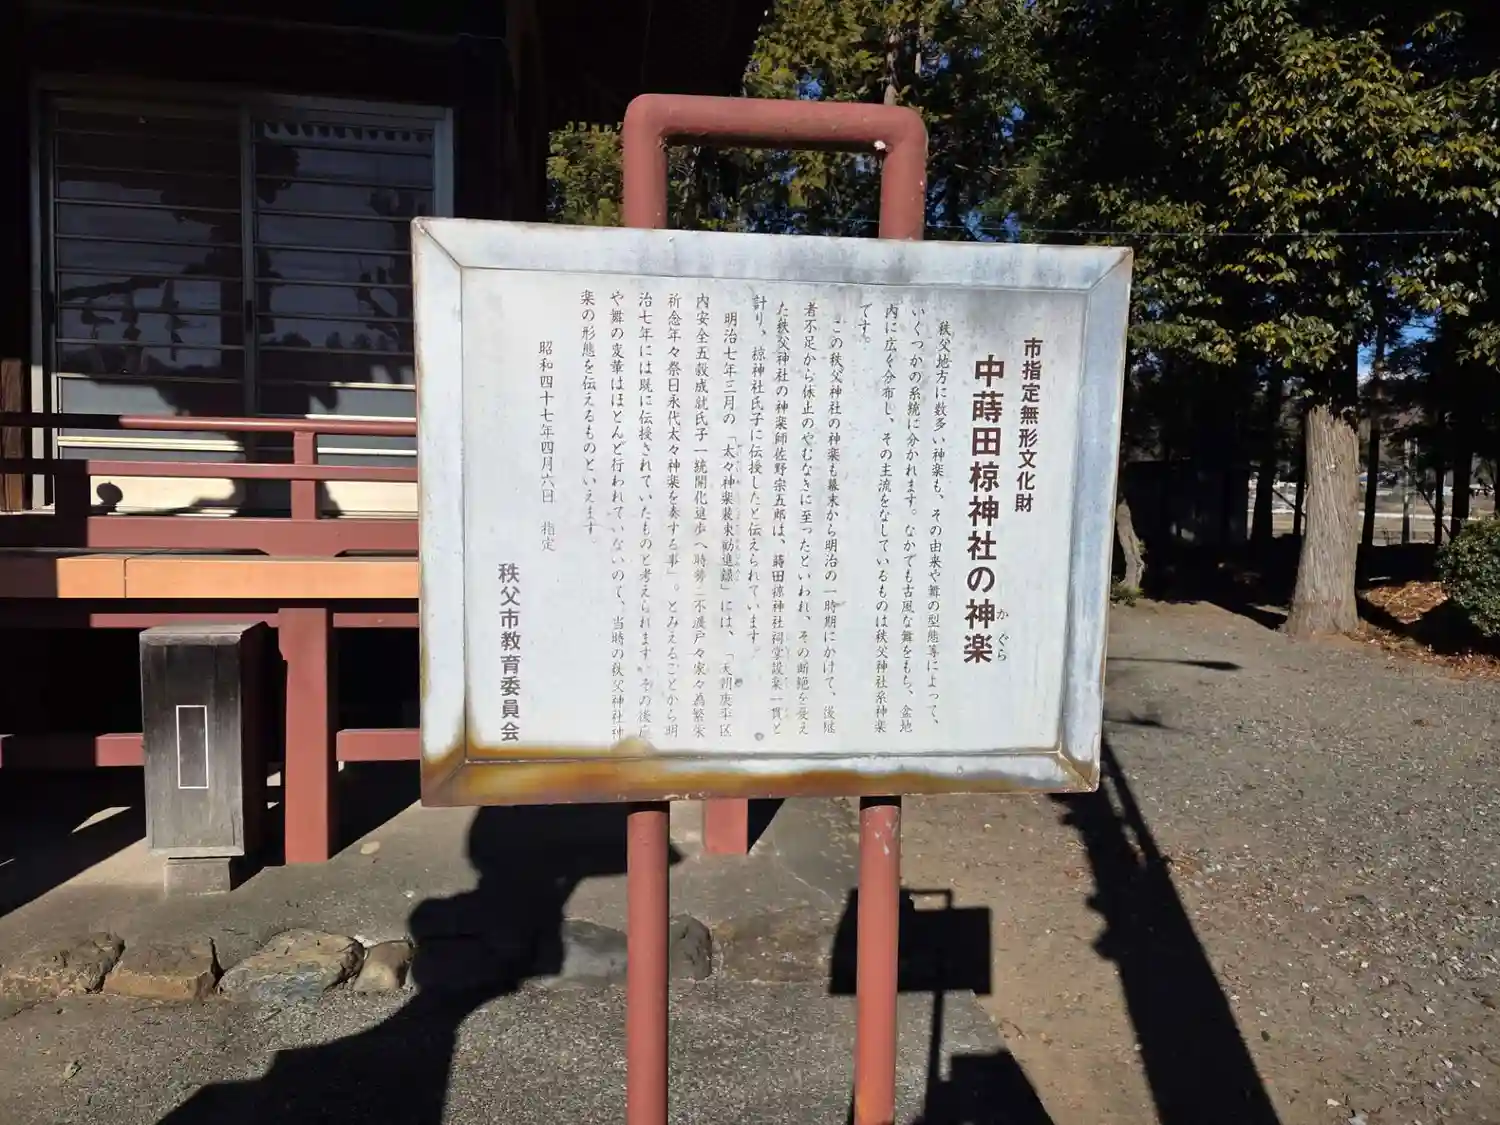 市指定無形文化財
中蒔田椋神社の神楽
かぐら
秩父地方に数多い神楽も、その由来や舞の型態等によって、
いくつかの系統に分かれます。なかでも古風な舞をもち、盆地
内に広く分布し、その主流をなしているものは秩父神社系神楽
です。
この秩父神社の神楽も幕末から明治の一時期にかけて、後継
者不足から休止のやむなきに至ったといわれ、その断絶を憂え
た秩父神社の神楽師佐野宗五郎は、蒔田椋神社祠掌設楽一貫と
計り、椋神社氏子に伝授したと伝えられています。
明治七年三月の「太々神楽装束勧進録」には、「天朝庚平区
内安全五穀成就氏子一統開化進歩ヘ時勢ニ不遅戸々家々為繁栄
祈念年々祭日永代太々神楽を奏する事」。とみえることから明
治七年には既に伝授されていたものと考えられます。その後庭
や舞の変革はほとんど行われていないので、当時の秩父神社神
楽の形態を伝えるものといえます。
昭和四十七年四月六日 指定
秩父市教育委員会